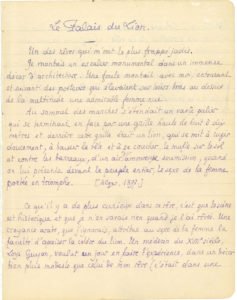 Le Palais du Lion.
Un des rêves qui m'ont le plus frappé jadis.
Je montais un escalier monumental dans un immense
décor d'architecture. Une foule montait avec moi, entourant
et suivant des porteurs qui élevaient sur leurs bras au dessus
de la multitude une admirable femme nue.
Au sommet des marches s'étendait un vaste palier
qui se terminait, en face par une grille haute de huit à dix
mètres et derrière cette grille était un lion, qui se mit à rugir
doucement, à baisser la tête et à se coucher, le mufle sur le sol
et contre les barreaux, d'un air soumis, quand
on lui présenta devant le peuple entier le sexe de la femme
portée en triomphe. [Alger, 1897.]
Ce qu'il y a de plus curieux dans ce rêve, c'est que le
est historique et que je n'en savais rien quand je l'ai rêvé. Une
croyance arabe, que j'ignorais, attribue au sexe de la femme la
faculté d'apaiser la colère du lion. Un médecin du XVIIe siècle,
Guyon, voulut un jour en faire l'expérience, dans un
bien plus modeste que celui de mon rêve (c'était dans une